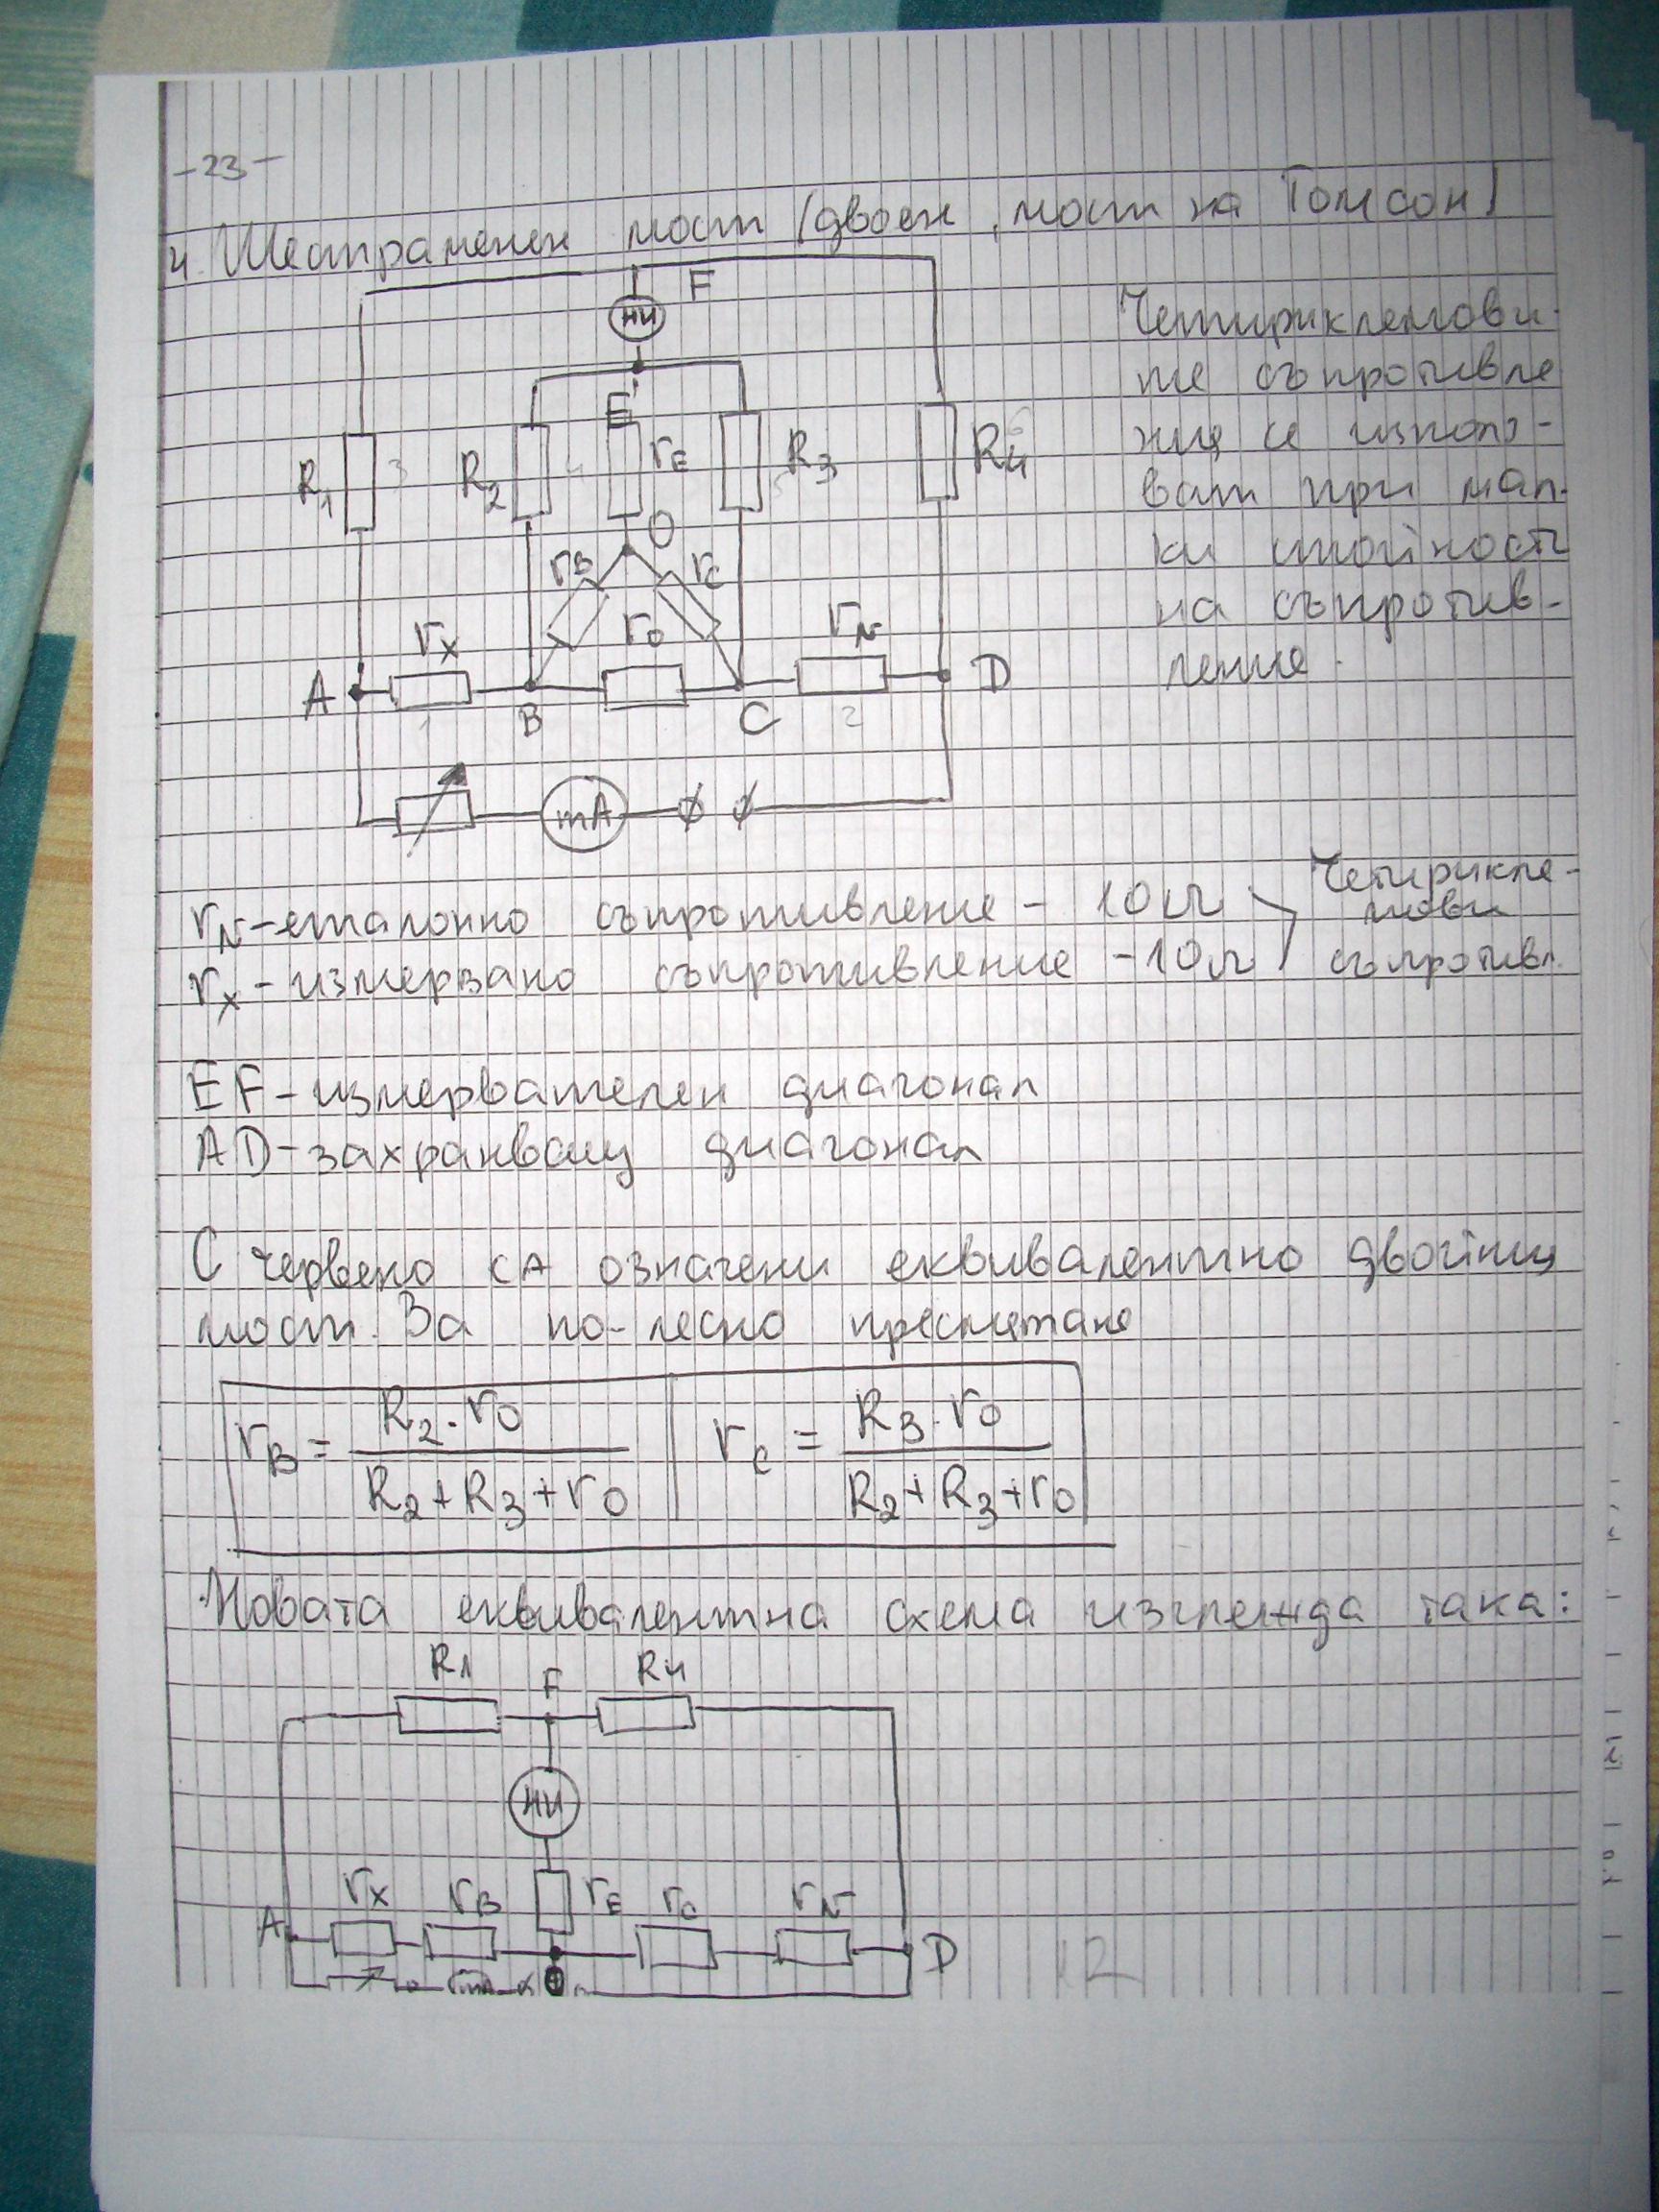 -23-
4. Шестраменен мост (двоен, мост на Томсон)
F
НИ
E
R1 3 R2 4 rE R3 5 R4 6
O
rB rC
rX r0 rN
A B C D
1 2
mA
Четириклемови-
те съпротивле
ния се използ-
ват при мал-
ки стойности
на съпротив-
ление.
rN - еталонно съпротивление -
rX - измервано съпротивление -
Четирикле-
мови
съпротивл.
EF - измервателен диагонал
AD - захранващ диагонал
С червено са означени еквивалентно
мост. За по-лесно пресмятане
rB = R2.r0 / R2+R3+r0 | rC = R3.r0 / R2+R3+r0
Новата еквивалентна схема изглежда така:
R1 F R4
НИ
rX rB rE rC rN
A D
mA O
12